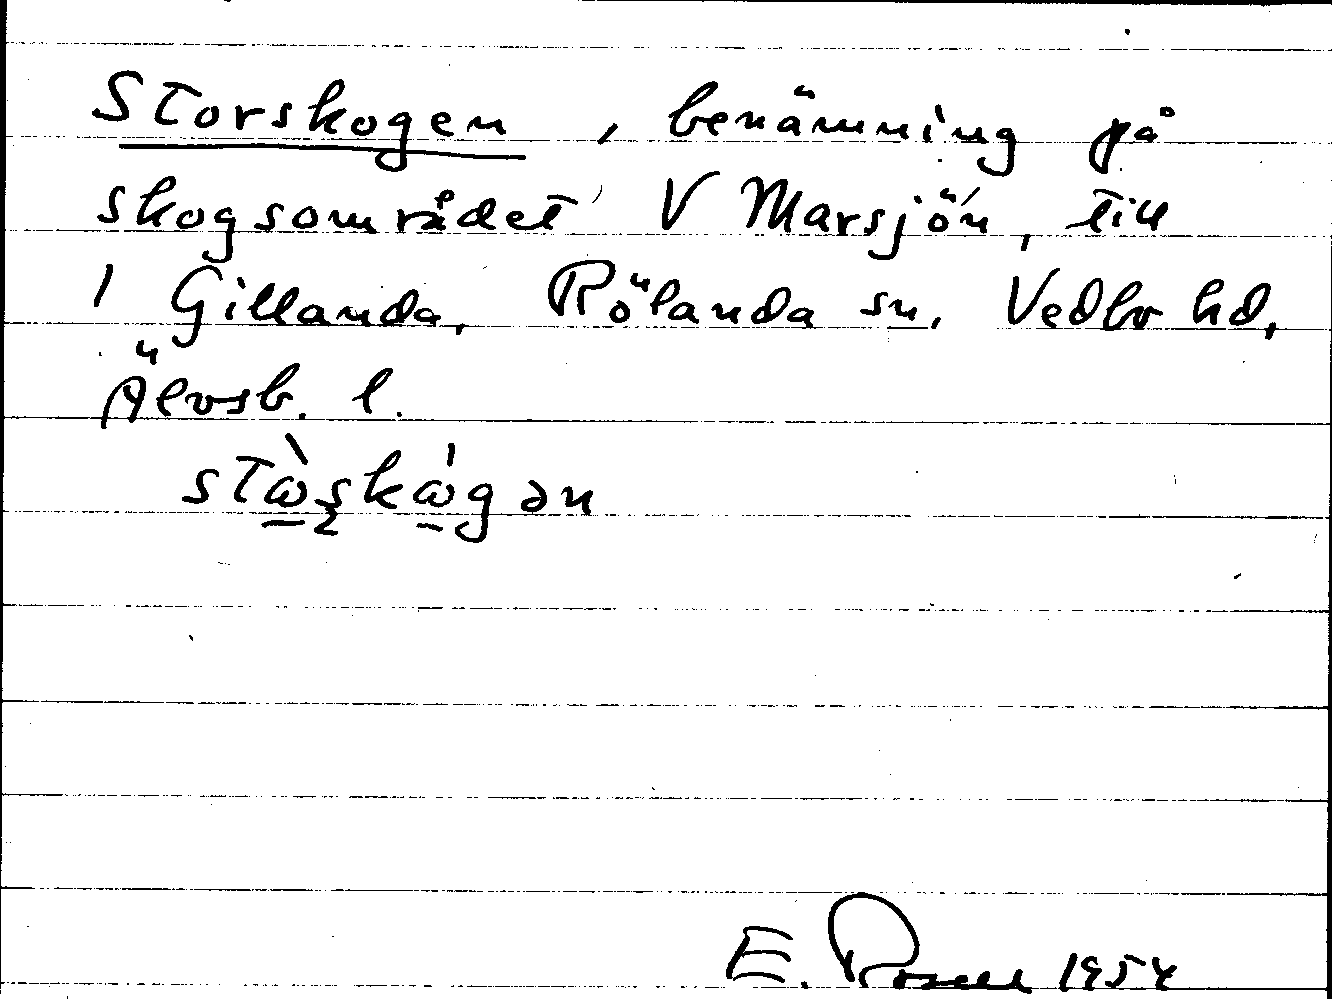 Storskogen, benämning på
skogsområdet V Marsjön, till
1 Gillanda, Rölanda sn, Vedbo hd,
Älvsb. l.
stὼʂkώgən
E. Rosell 1954